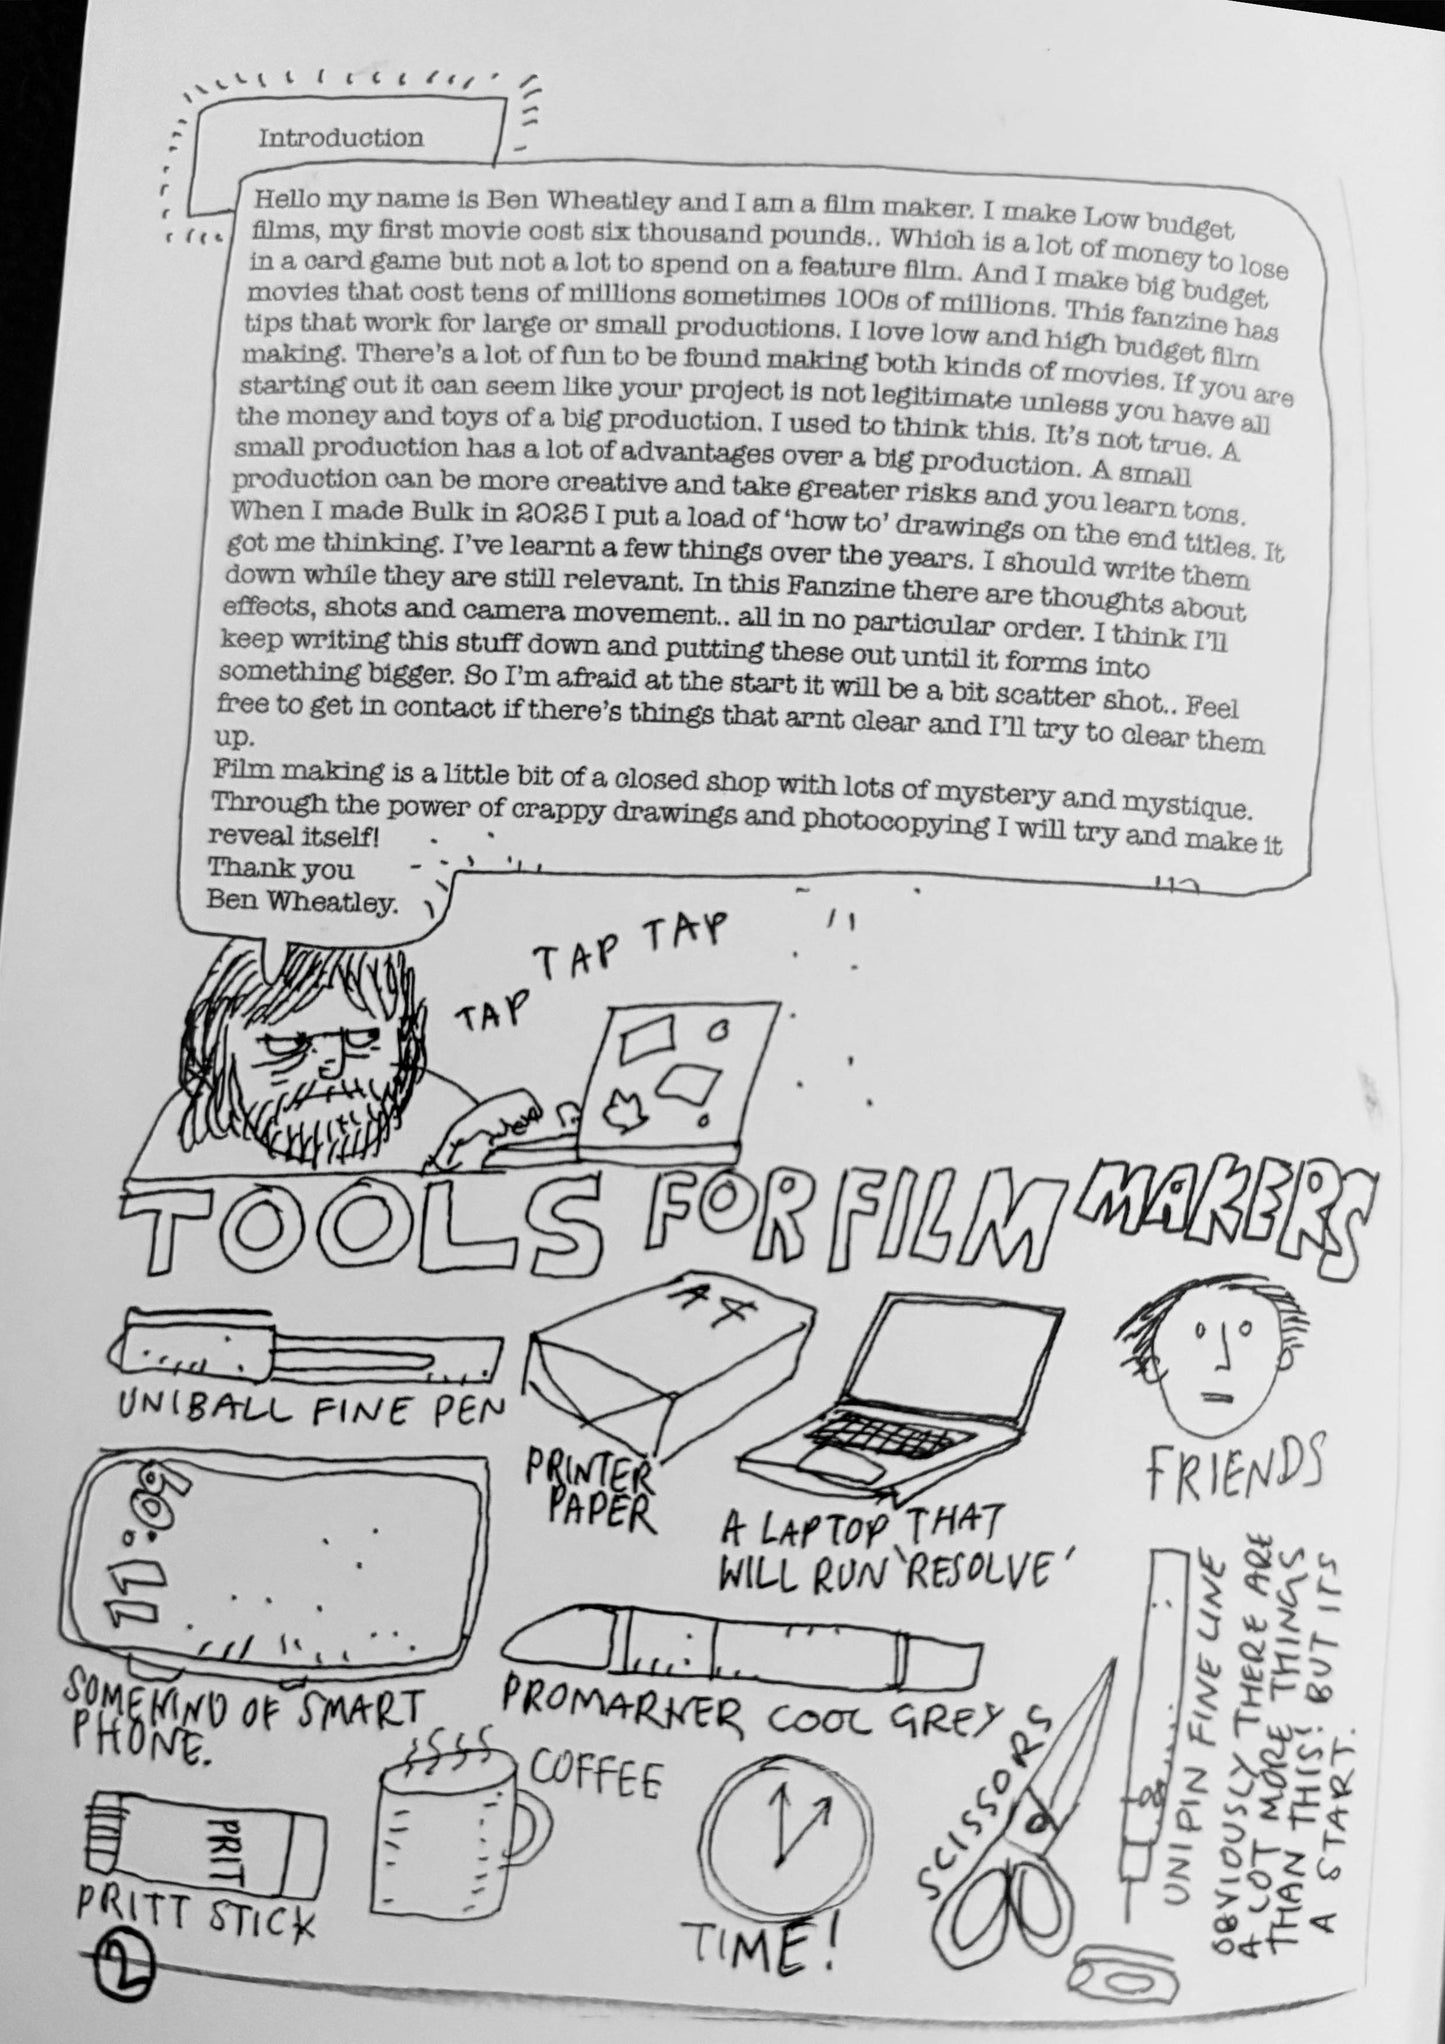 Introduction
Hello my name is Ben Wheatley and I am a film maker. I make Low budget
films, my first movie cost six thousand pounds.. Which is a lot of money to lose
in a card game but not a lot to spend on a feature film. And I make big budget
movies that cost tens of millions sometimes 100s of millions. This fanzine has
tips that work for large or small productions. I love low and high budget film
making. There's a lot of fun to be found making both kinds of movies. If you are
starting out it can seem like your project is not legitimate unless you have all
the money and toys of a big production. I used to think this. It's not true. A
small production has a lot of advantages over a big production. A small
production can be more creative and take greater risks and you learn tons.
When I made Bulk in 2025 I put a load of 'how to' drawings on the end titles. It
got me thinking. I've learnt a few things over the years. I should write them
down while they are still relevant. In this Fanzine there are thoughts about
effects, shots and camera movement.. all in no particular order. I think I'll
keep writing this stuff down and putting these out until it forms into
something bigger. So I'm afraid at the start it will be a bit scatter shot.. Feel
free to get in contact if there's things that arnt clear and I'll try to clear them
up.
Film making is a little bit of a closed shop with lots of mystery and mystique.
Through the power of crappy drawings and photocopying I will try and make it
reveal itself!
Thank you
Ben Wheatley.
TAP TAP TAP
TOOLS FOR FILM MAKERS
UNIBALL FINE PEN
A4
PRINTER
PAPER
A LAPTOP THAT
WILL RUN 'RESOLVE'
FRIENDS
11:09
SOMEKIND OF SMART
PHONE.
PROMARKER COOL GREY
UNIPIN FINE LINE
OBVIOUSLY THERE ARE
A LOT MORE THINGS
THAN THIS! BUT ITS
A START.
PRIT
PRITT STICK
COFFEE
TIME!
SCISSORS
2